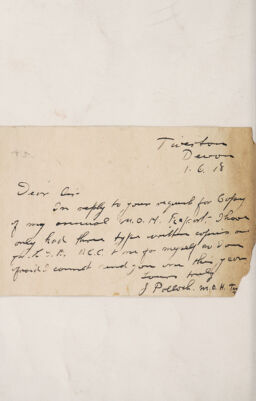 Tiverton
Devon
1.6.18
Dear Sir
In reply to your request for Copy
of my annual M.O.H. Report - I have
only had three type written copies one
for L.G.B. D.C.C & one for myself so I am
afraid I cannot send you one this year
Yours truly
J Pollock. M.O.H.